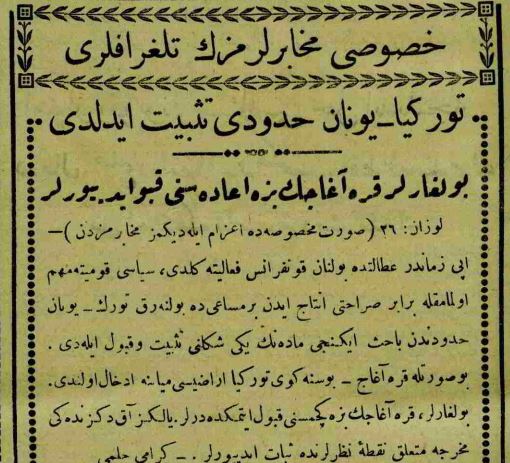 خصوصی مخابرلرمزك تلغرافلری
توركیا ـ یونان حدودی تثبیت ایدلدی
بولغارلر قره آغاجك بزه اعاده سنی قبول ایدییورلر
لوزان : ٢٦ ( صورت مخصوصه ده اعزام ایله دیكمز مخابرمزدن ) —
ایی زماندر عطالتده بولنان قونفرانس فعالیته كلدی، سیاسی قومیته مهم
اولمامقله برابر صراحتی انتاج ایدن بر مساعی ده بولنه رق تورك ـ یونان
حدودندن باحث ایكنجی ماده نك یكی شكلنی تثبیت و قبول ایله دی .
بو صورتله قره آغاج ـ بوسنه كوی توركیا اراضیسی میاننه ادخال اولندی .
بولغارلر، قره آغاجك بزه كچمسنی قبول ایتمكده درلر. یالكز آق دكزنده كی
مخرجه متعلق نقطهٔ نظرلرنده ثبات ایدییورلر . ـ كرامی حلمی